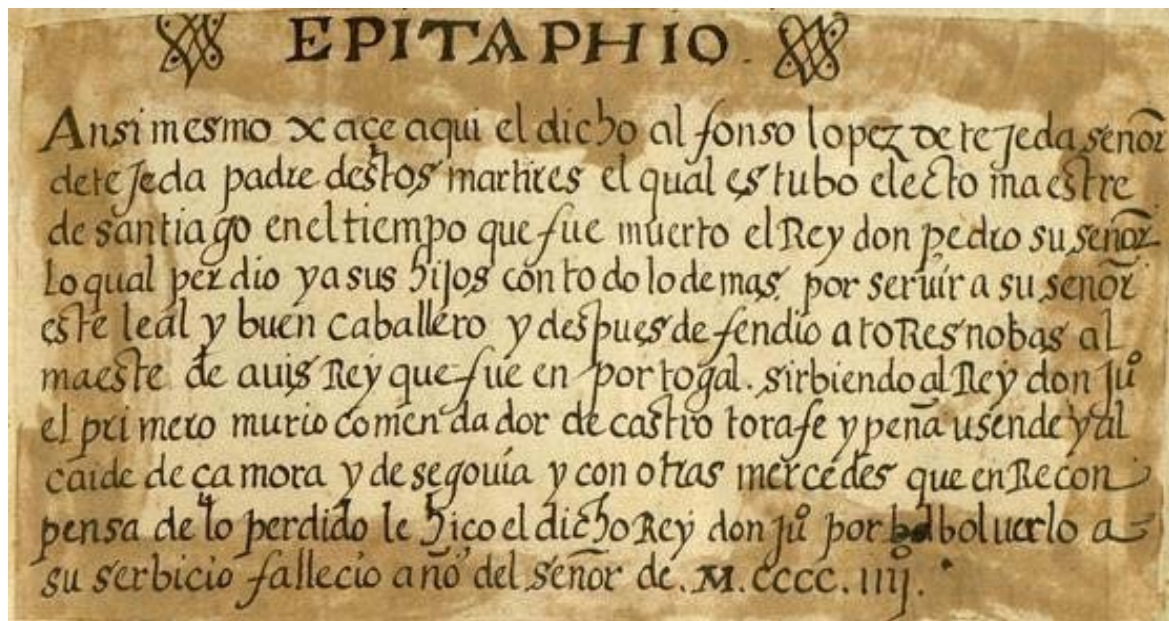 EPITAPHIO.
Ansi mesmo xaçe aqui el dicho alfonso lopez de teJeda señor
deteJeda padre destos martires el qual estubo electo maestre
de santiago enel tiempo que fue muerto el Rey don pedro su señor
Lo qual perdio yasus hijos con todo lo demas por seruir a su señor
este leal y buen caballero y despues defendio a toRes nobas al
maeste de auis Rey que fue en portogal. sirbiendo al Rey don Juº
el primero murio comendador de castro torafe y peña usende y al
caide de çamora y de segouia y con otras mercedes que en Recon
pensa de lo perdido le hico el dicho Rey don Juº por boluerlo a
su serbicio fallecio año del señor de. M. cccc. iiijº.